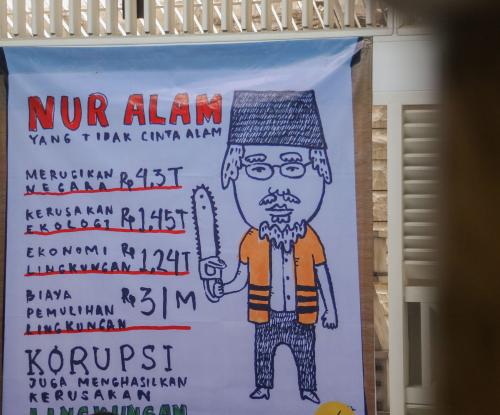 NUR ALAM
YANG TIDAK CINTA ALAM
MERUGIKAN
NEGARA Rp 4.3T
KERUSAKAN
EKOLOGI Rp 1.45T
EKONOMI
LINGKUNGAN Rp 1.24T
BIAYA
PEMULIHAN
LINGKUNGAN Rp 31M
KORUPSI
JUGA MENGHASILKAN
KERUSAKAN
LINGKUNGAN